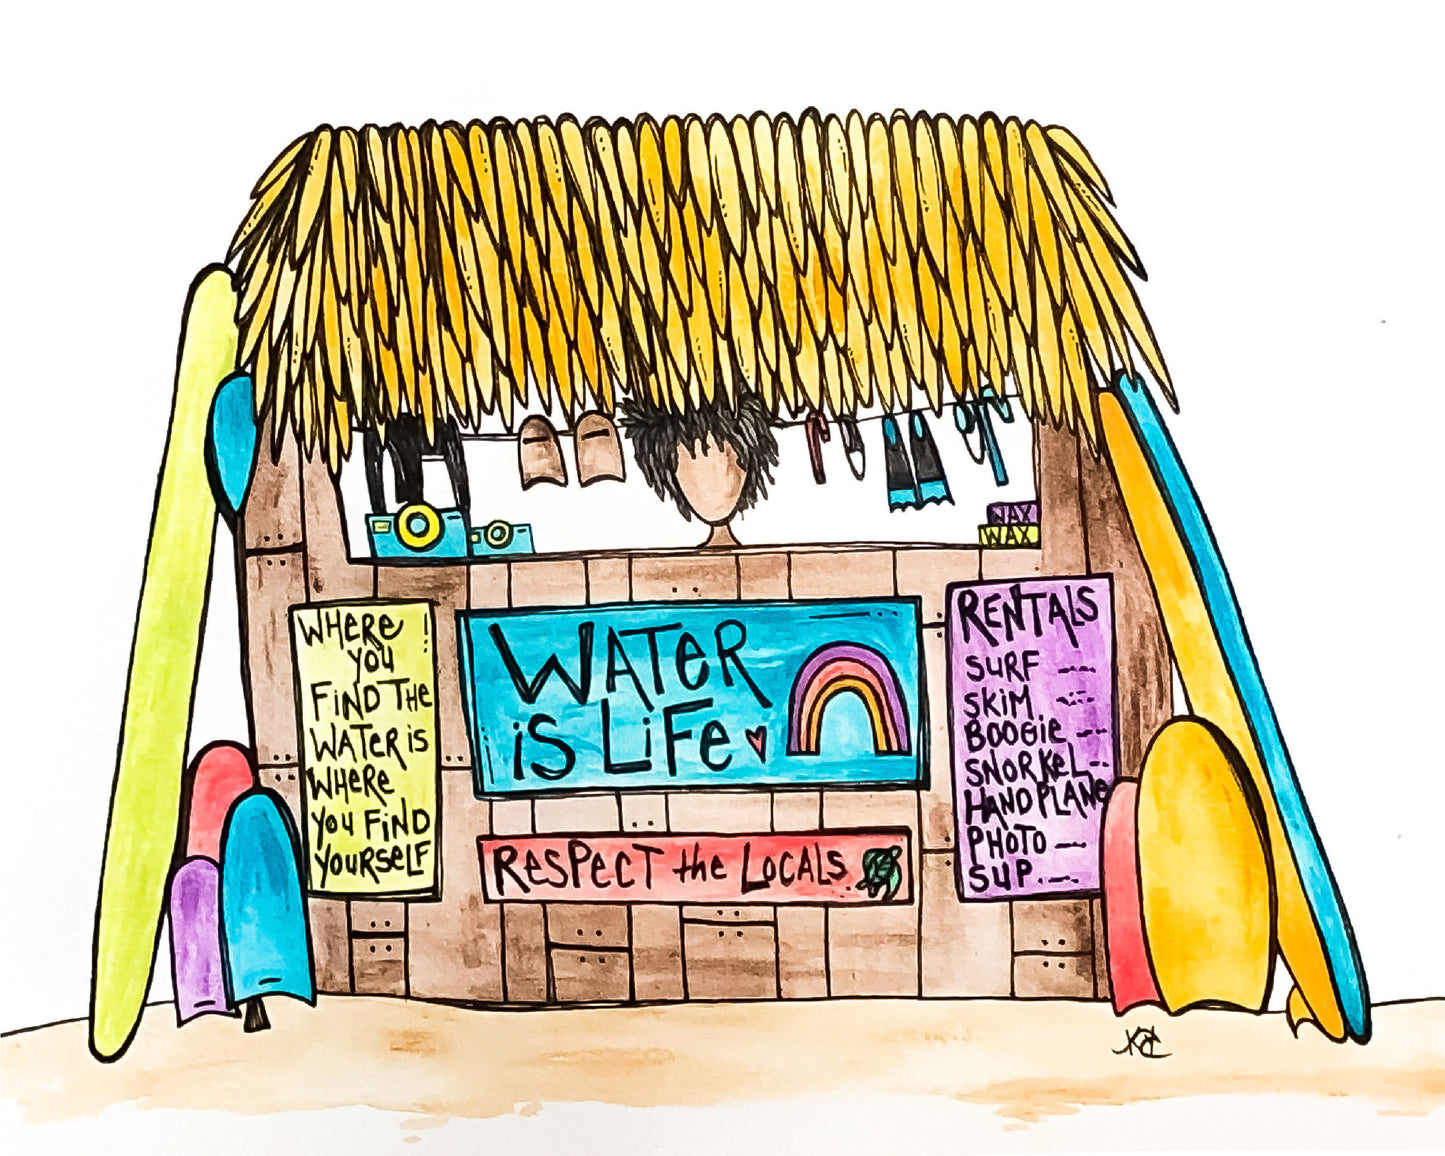 WAX
WAX
WHERE !
YOU
FIND THE
WATER IS
WHERE
YOU FIND
YOURSELF
WATER
IS LIFE
RESPECT the LOCALS
RENTALS
SURF
SKIM
BOOGIE
SNORKEL
HANDPLANE
PHOTO
SUP